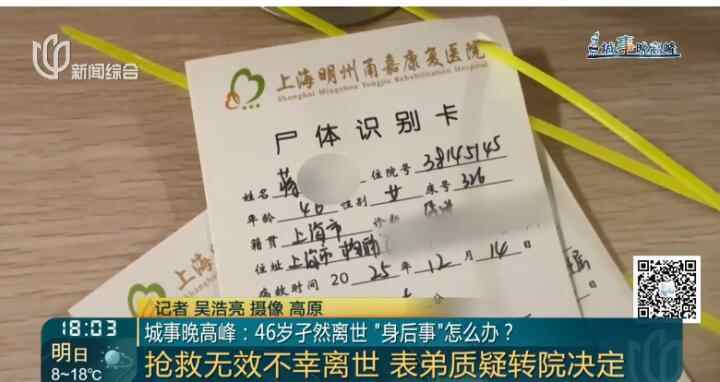 新闻综合
城事晚高峰
上海明州甬嘉康复医院
Shanghai Mingzhou Yongjia Rehabilitation Hospital
尸体识别卡
姓名 蒋 住院号 38145145
年龄 46 性别 女 床号 326
籍贯 上海市 诊断
住址 上海市
病故时间 2025年12月14日
记者 吴浩亮 摄像 高原
18:03 城事晚高峰：46岁孑然离世 "身后事"怎么办？
明日 抢救无效不幸离世 表弟质疑转院决定
8~18℃